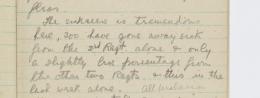 The sickness is tremendous
here, 200 have gone away sick
from the 2nd Regt alone & only
a slightly less percentage from
the other two Regts. & this in the
last week alone. All malaria